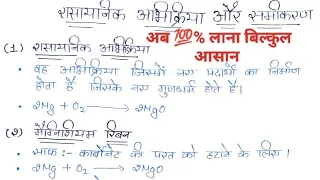 रासायनिक अभिक्रिया और समीकरण
अब 💯% लाना बिल्कुल
आसान
(1) रासायनिक अभिक्रिया
• वह अभिक्रिया जिसमें नए पदार्थो का निर्माण
होता है जिसके नए गुणधर्म होते है।
• 2Mg + O₂ → 2MgO
(२) मैग्निशियम रिबन
• साफ :- कार्बोनेट की परत को हटाने के लिए।
• 2Mg + O₂ → 2MgO